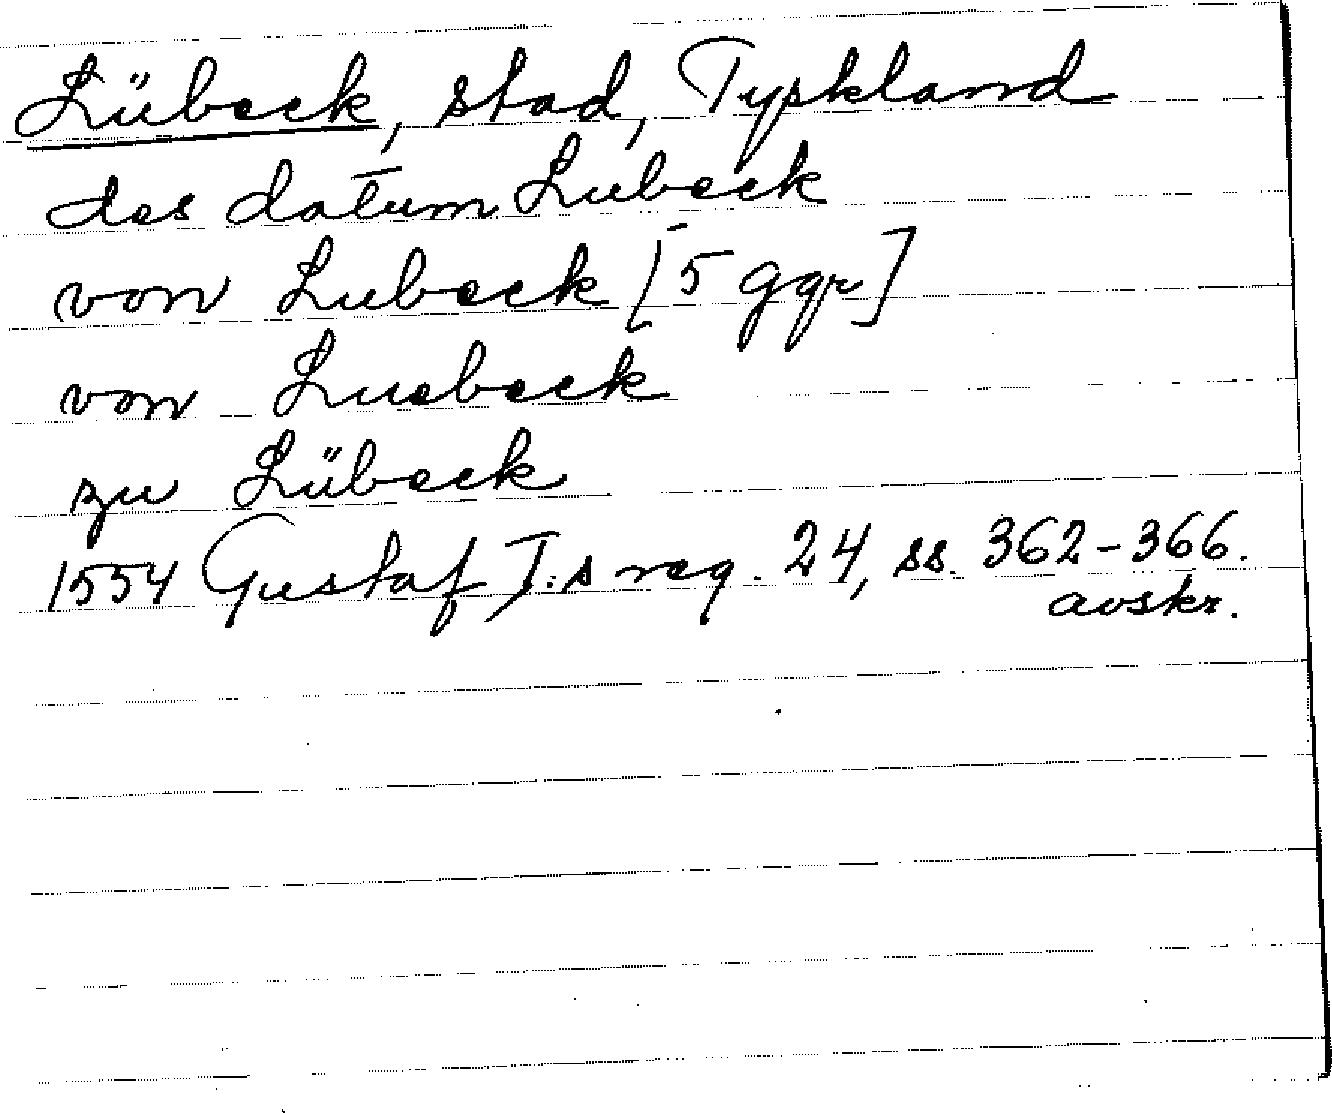 Lübeck, stad, Tyskland
des datum Lubeck
von Lubeck [5 ggr]
von Luebeck
zu Lübeck
1554 Gustaf I:s reg. 24, ss. 362-366.
avskr.